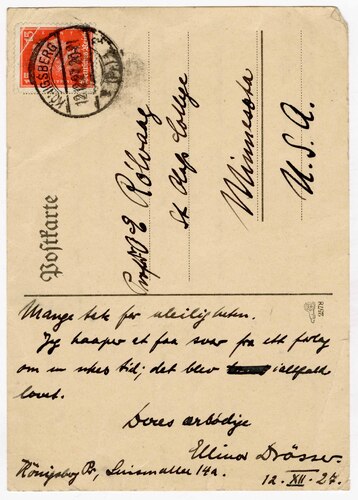 Postkarte
KÖNIGSBERG
12.12.27
15
Prof. O E Rölvaag
St Olafs College
Minnesota
U. S. A.
2578
Mange tak for uleiligheten.
Jeg haaper at faa svar fra ett forlag
om en ukes tid; det blev iallfald
lovet.
Deres ærbødige
Ellinor Drösser
Königsberg Pr, Luisenallee 14a.
12. XII. 27.